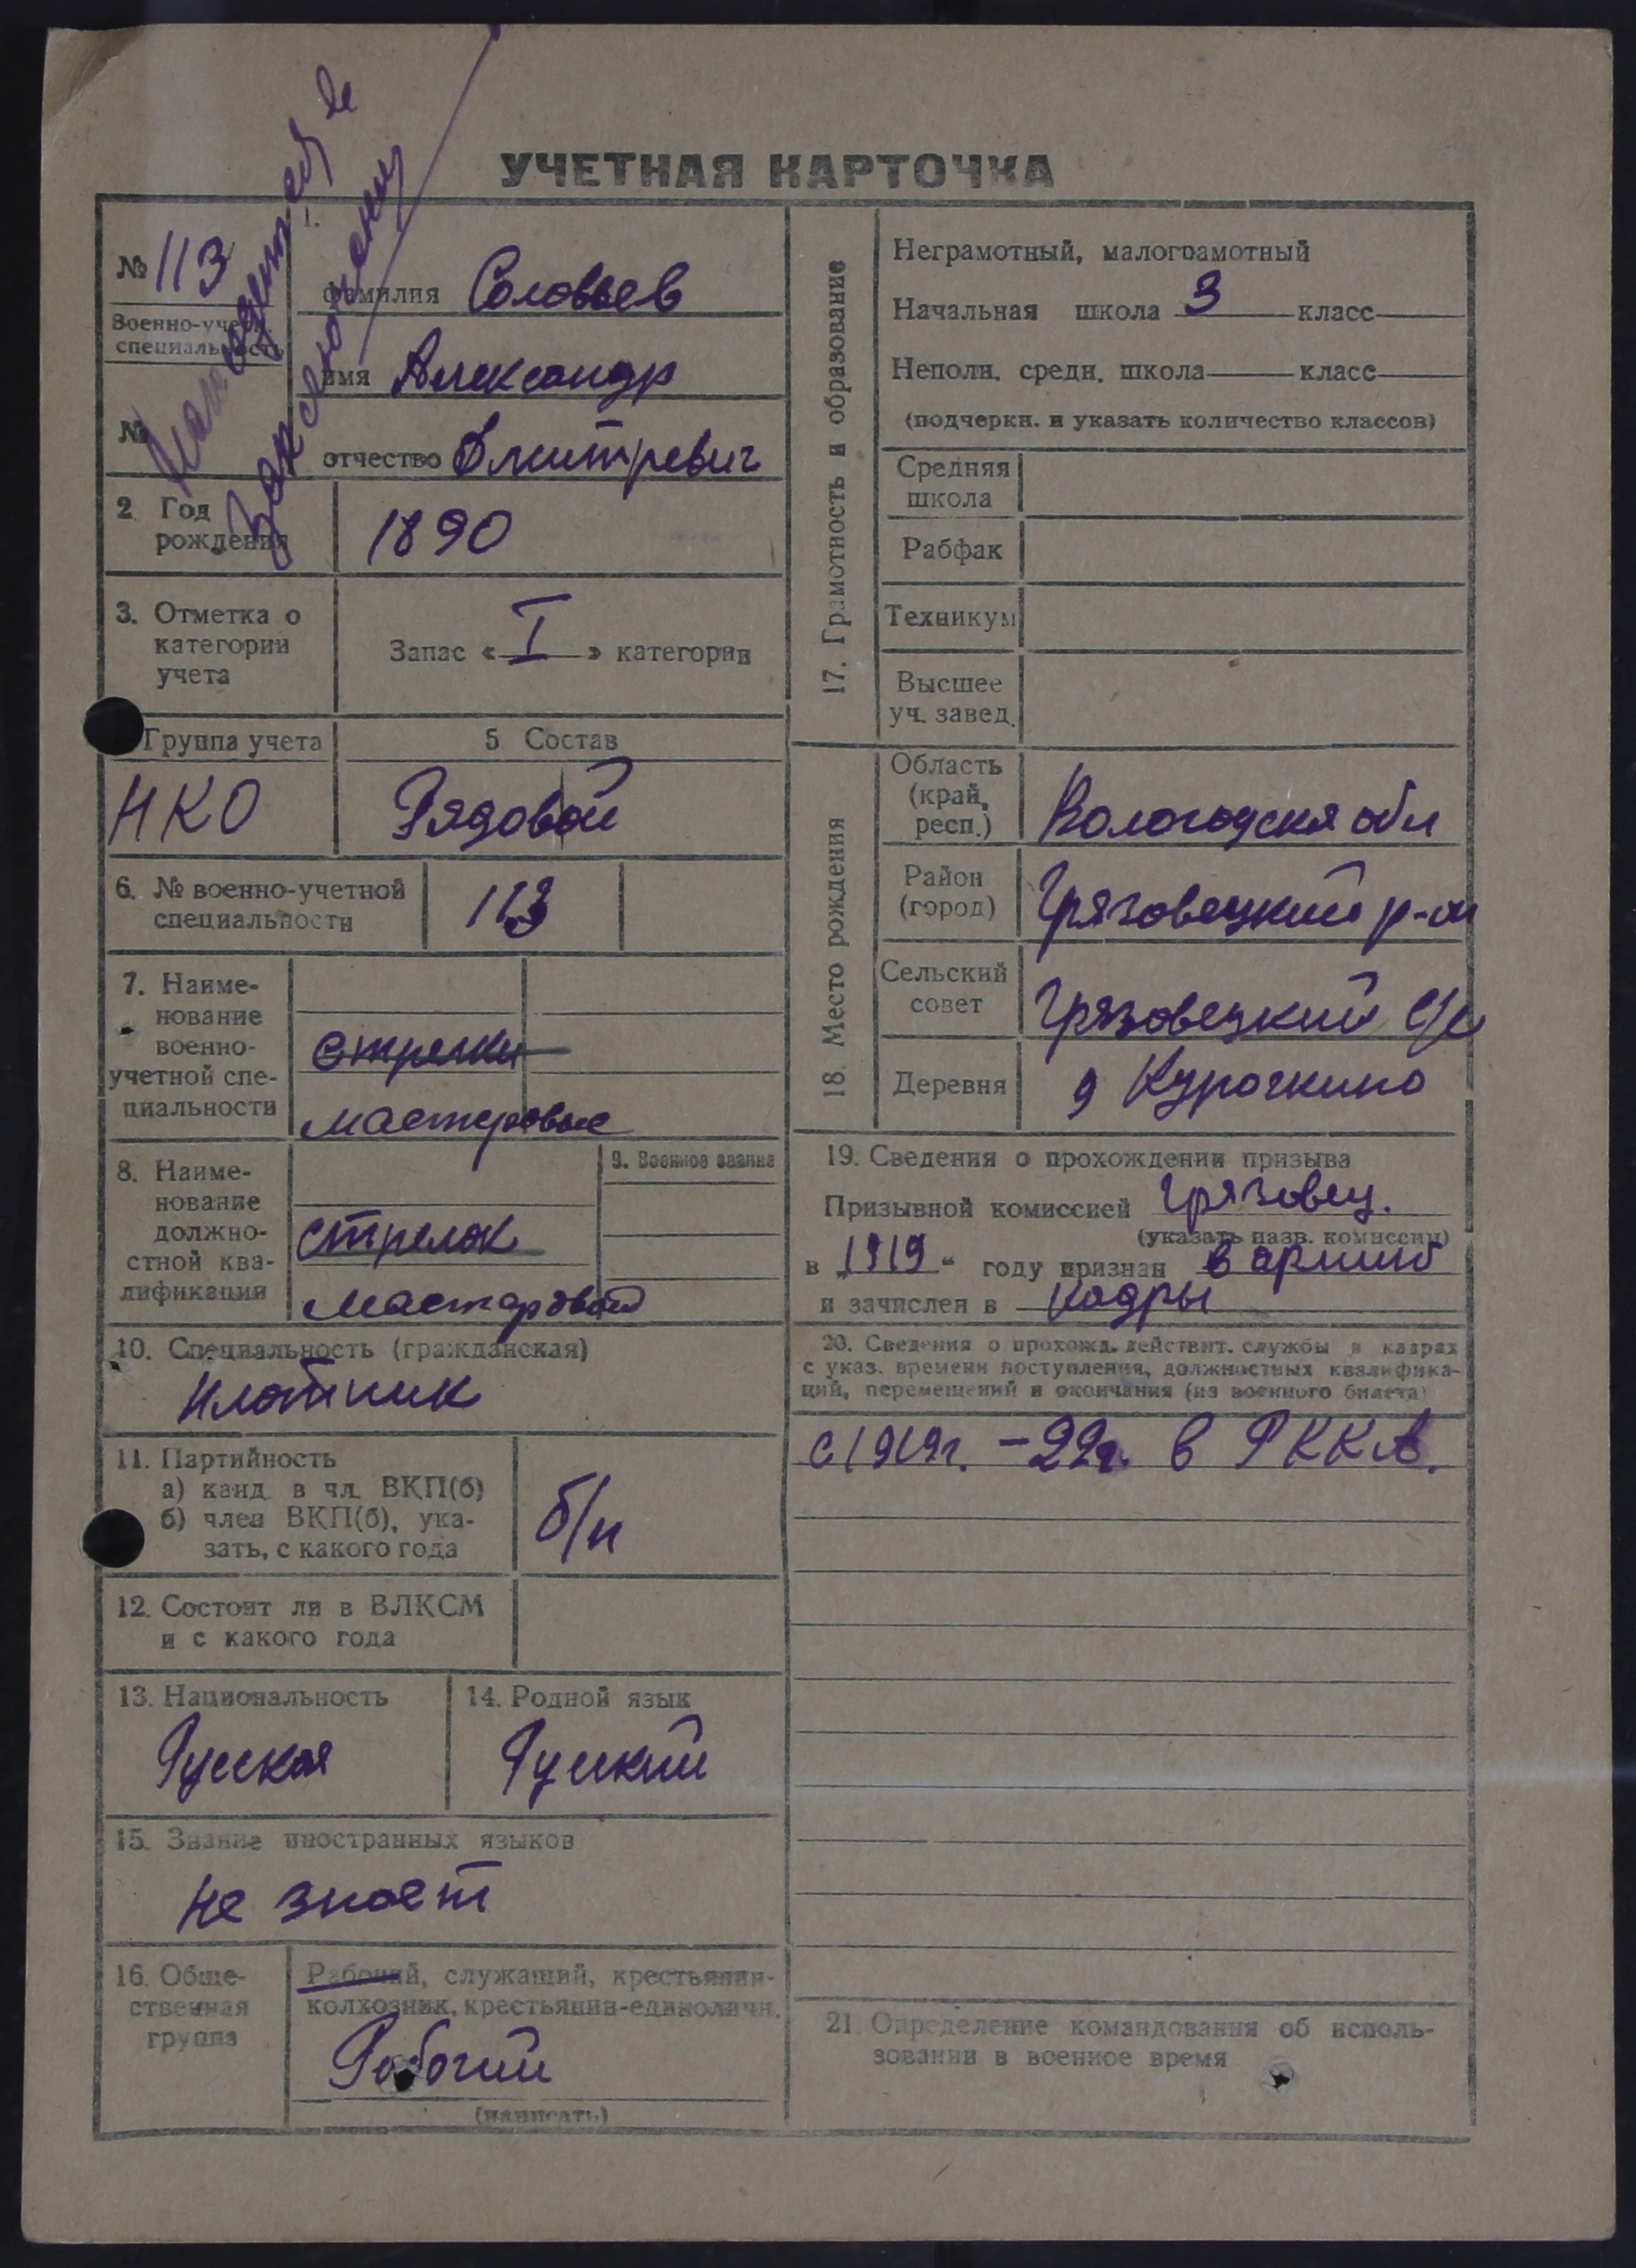 УЧЕТНАЯ КАРТОЧКА
Находится в
заключении
№ 113
Военно-учетн. специальность
№
1.
фамилия Соловьев
имя Александр
отчество Дмитревич
2 Год рождения
1890
3. Отметка о категории учета
Запас « I » категории
Группа учета
НКО
5 Состав
Рядовой
6. № военно-учетной специальности
113
7. Наименование военно-учетной специальности
стрелки
мастеровые
8. Наименование должностной квалификации
стрелок
мастеровой
9. Военное звание
10. Специальность (гражданская)
плотник
11. Партийность
а) канд. в чл. ВКП(б)
б) член ВКП(б), ука-
зать, с какого года
б/п
12. Состоит ли в ВЛКСМ
и с какого года
13. Национальность
Русская
14. Родной язык
Руский
15. Знание иностранных языков
не знает
16. Общественная группа
Рабочий, служащий, крестьянин-
колхозник, крестьянин-единоличн.
Рабочий
(написать)
17. Грамотность и образование
Неграмотный, малограмотный
Начальная школа 3 класс
Неполн. средн. школа класс
(подчеркн. и указать количество классов)
Средняя школа
Рабфак
Техникум
Высшее уч. завед.
18. Место рождения
Область (край, респ.)
Вологодская обл
Район (город)
Грязовецкий р-он
Сельский совет
Грязовецкий с/с
Деревня
д Курочкино
19. Сведения о прохождении призыва
Призывной комиссией Грязовец.
(указать назв. комиссии)
в „1919“ году признан в армию
и зачислен в кадры
20. Сведения о прохожд. действит. службы в кадрах
с указ. времени поступления, должностных квалифика-
ций, перемещений и окончания (из военного билета)
с 1919г. – 22г. в РККА.
21. Определение командования об исполь-
зовании в военное время